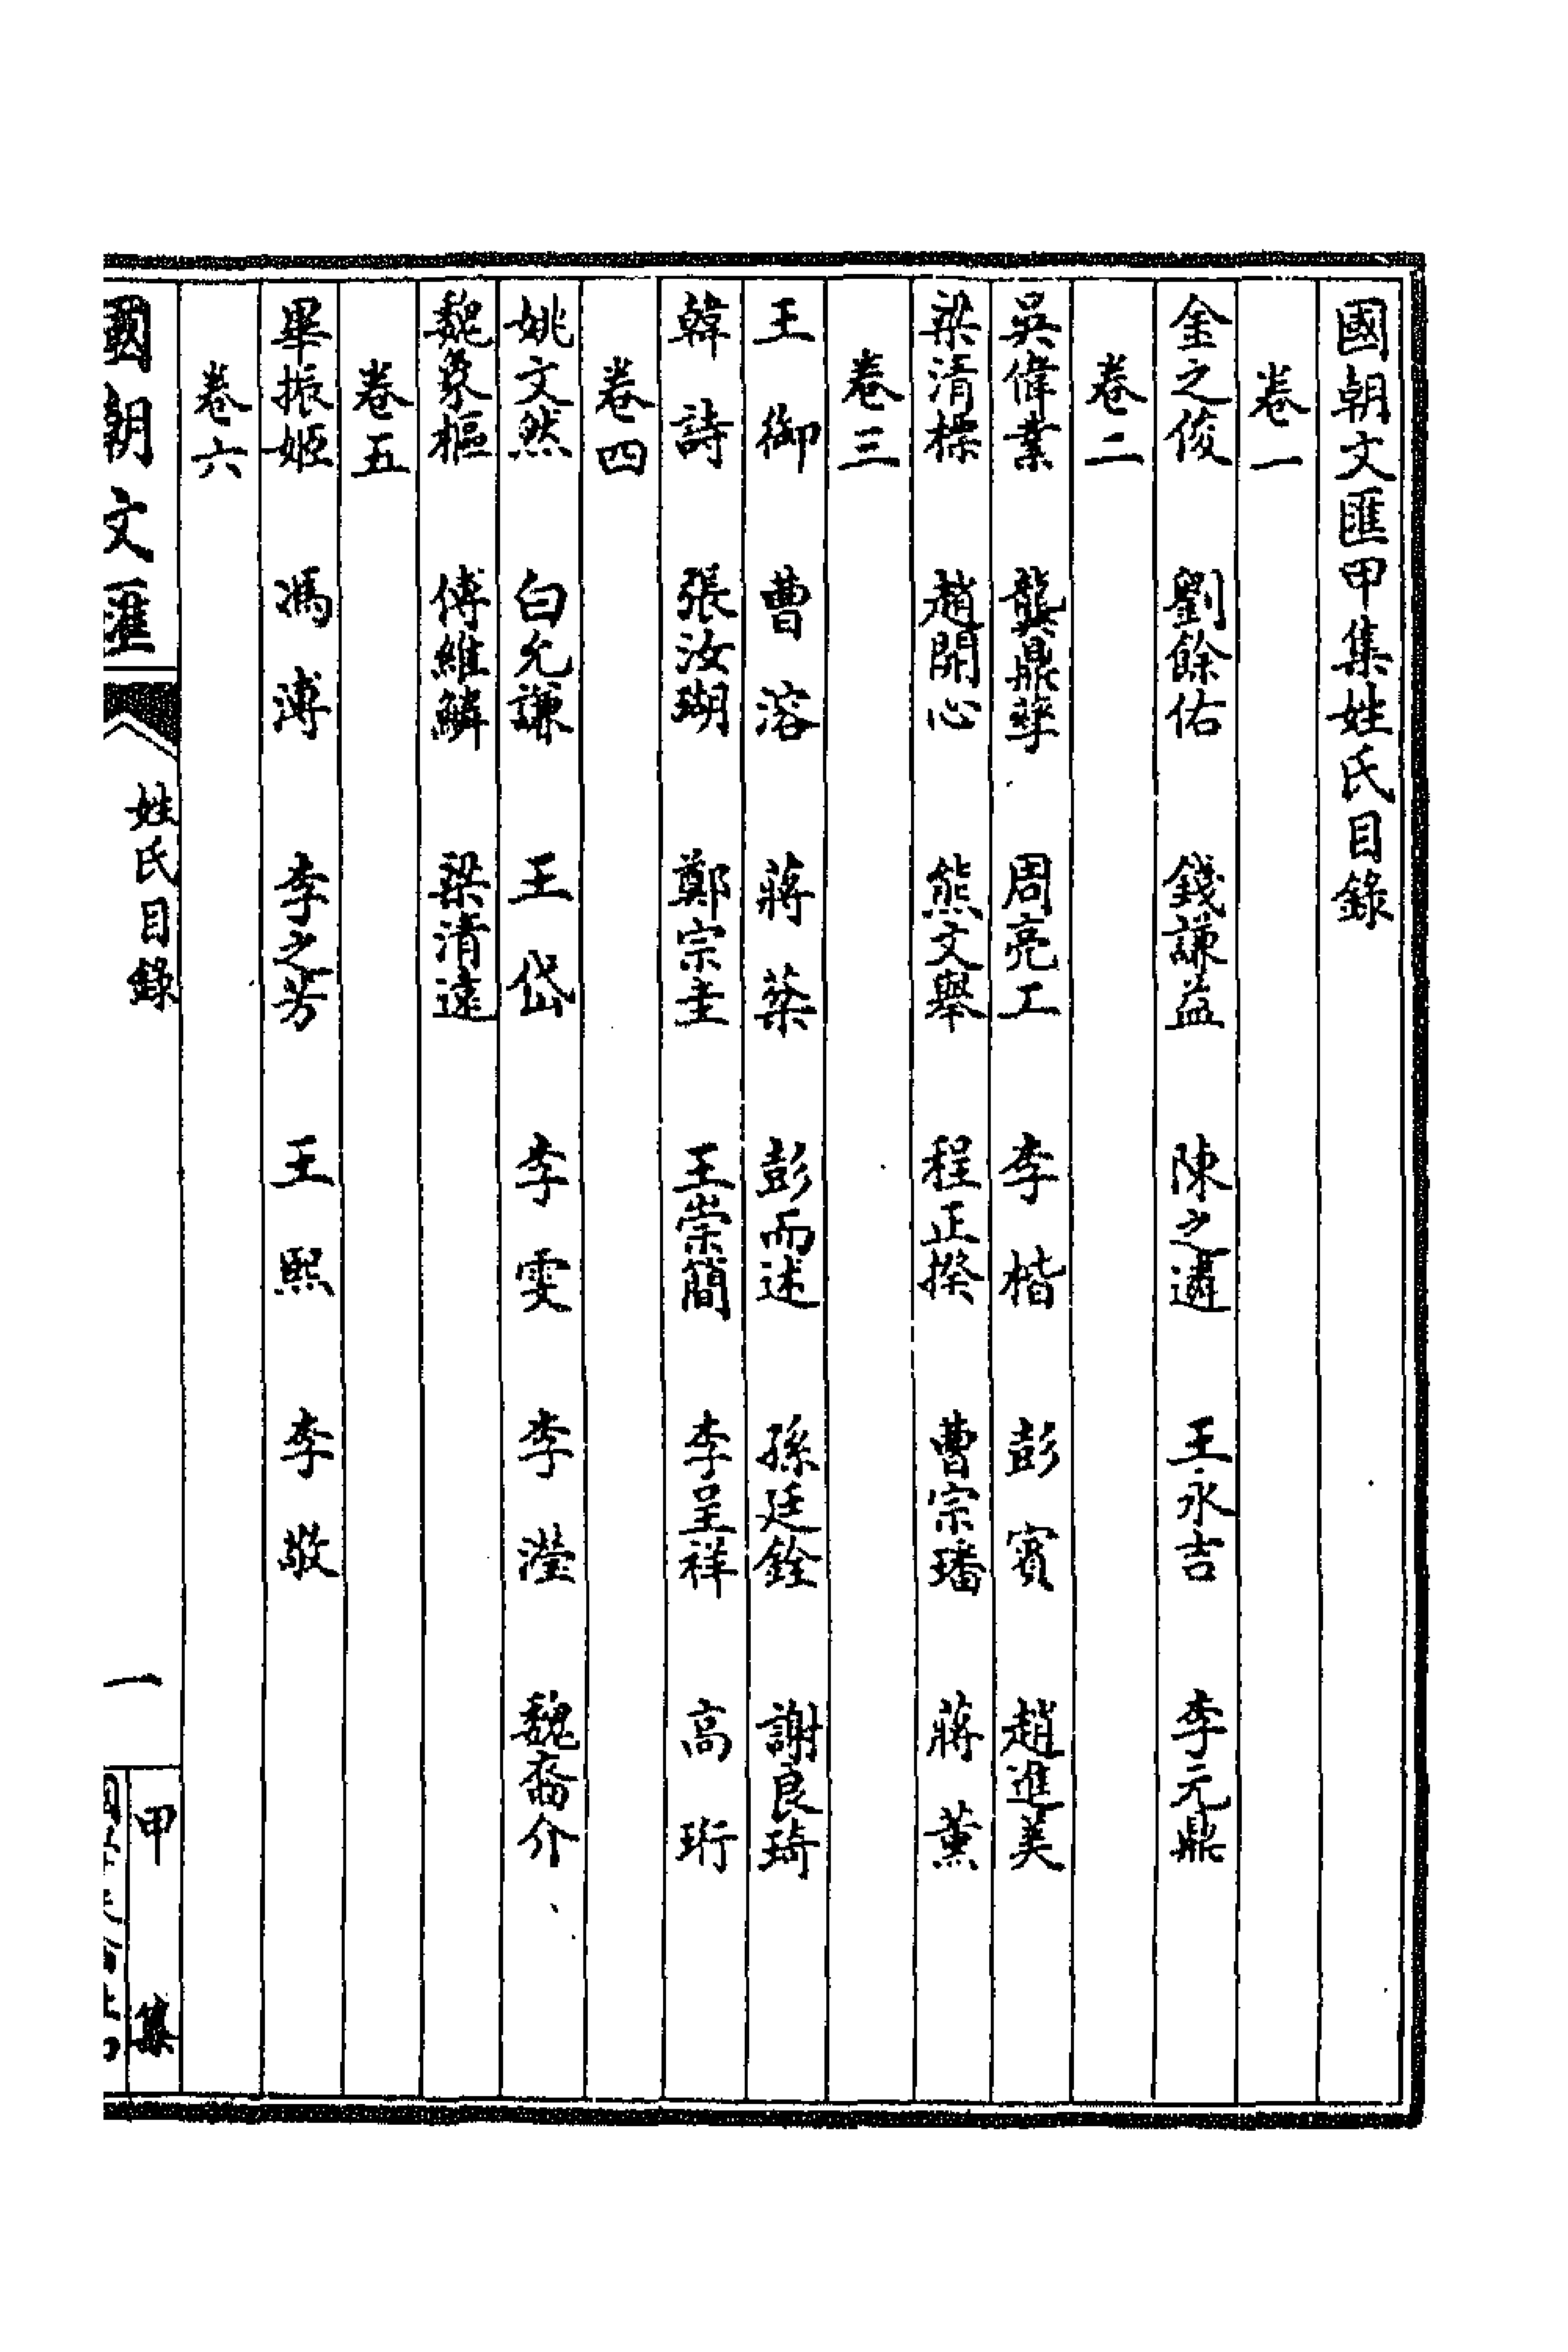 國朝文匯甲集姓氏目錄
卷一
金之俊 劉餘佑 錢謙益 陳之遴 王永吉 李元鼎
卷二
吳偉業 龔鼎孳 周亮工 李楷 彭賓 趙進美
梁清標 趙開心 熊文舉 程正揆 曹宗璠 蔣薰
卷三
王御 曹溶 蔣棻 彭而述 孫廷銓 謝良琦
韓詩 張汝瑚 鄭宗圭 王崇簡 李呈祥 高珩
卷四
姚文然 白允謙 王岱 李雯 李瀅 魏裔介
魏象樞 傅維鱗 梁清遠
卷五
畢振姬 馮溥 李之芳 王熙 李敬
卷六
國朝文匯 姓氏目錄 一 甲集